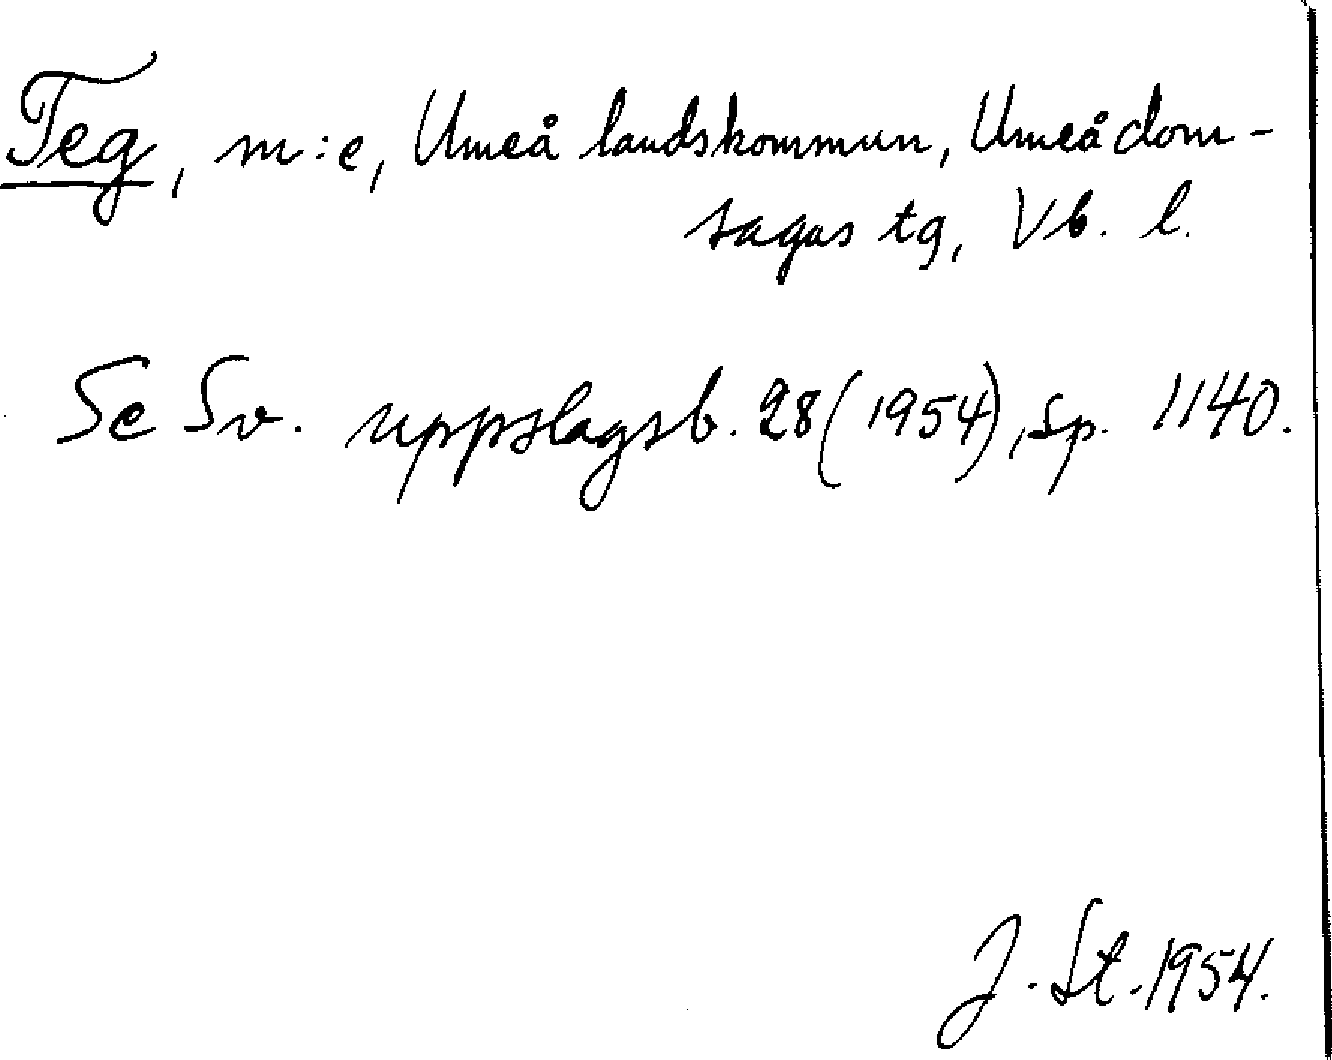 Teg, m:e, Umeå landskommun, Umeå dom-
sagas tg, Vb. l.
Se Sv. uppslagsb. 28 (1954), sp. 1140.
J. St. 1954.